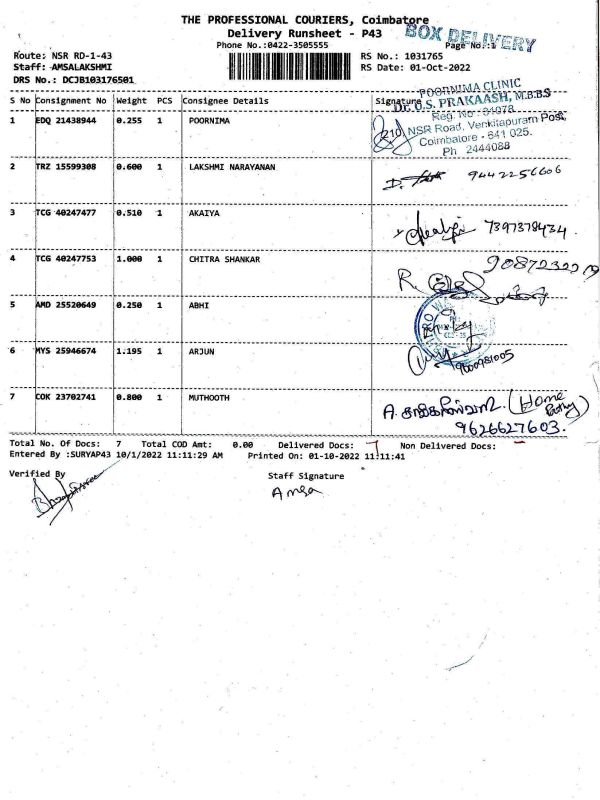 THE PROFESSIONAL COURIERS, Coimbatore
Delivery Runsheet - P43
BOX DELIVERY
Phone No.:0422-3505555
Page No.:1
Route: NSR RD-1-43
RS No.: 1031765
Staff: AMSALAKSHMI
RS Date: 01-Oct-2022
DRS No.: DCJB103176501
S No Consignment No Weight PCS Consignee Details Signature
POORNIMA CLINIC
Dr. U.S. PRAKAASH, M.B.B.S
Reg. No : 31078
210, NSR Road, Venkitapuram Post,
Coimbatore - 641 025.
Ph 2444088
1 EDQ 21438944 0.255 1 POORNIMA
2 TRZ 15599308 0.600 1 LAKSHMI NARAYANAN
9442256606
3 TCG 40247477 0.510 1 AKAIYA
7397378434
4 TCG 40247753 1.000 1 CHITRA SHANKAR
5 AMD 25520649 0.250 1 ABHI
6 MYS 25946674 1.195 1 ARJUN
7 COK 23702741 0.800 1 MUTHOOTH
(Home
9626627603.
Total No. Of Docs: 7 Total COD Amt: 0.00 Delivered Docs: 7 Non Delivered Docs:
Entered By :SURYAP43 10/1/2022 11:11:29 AM Printed On: 01-10-2022 11:11:41
Verified By
Staff Signature
Amsa